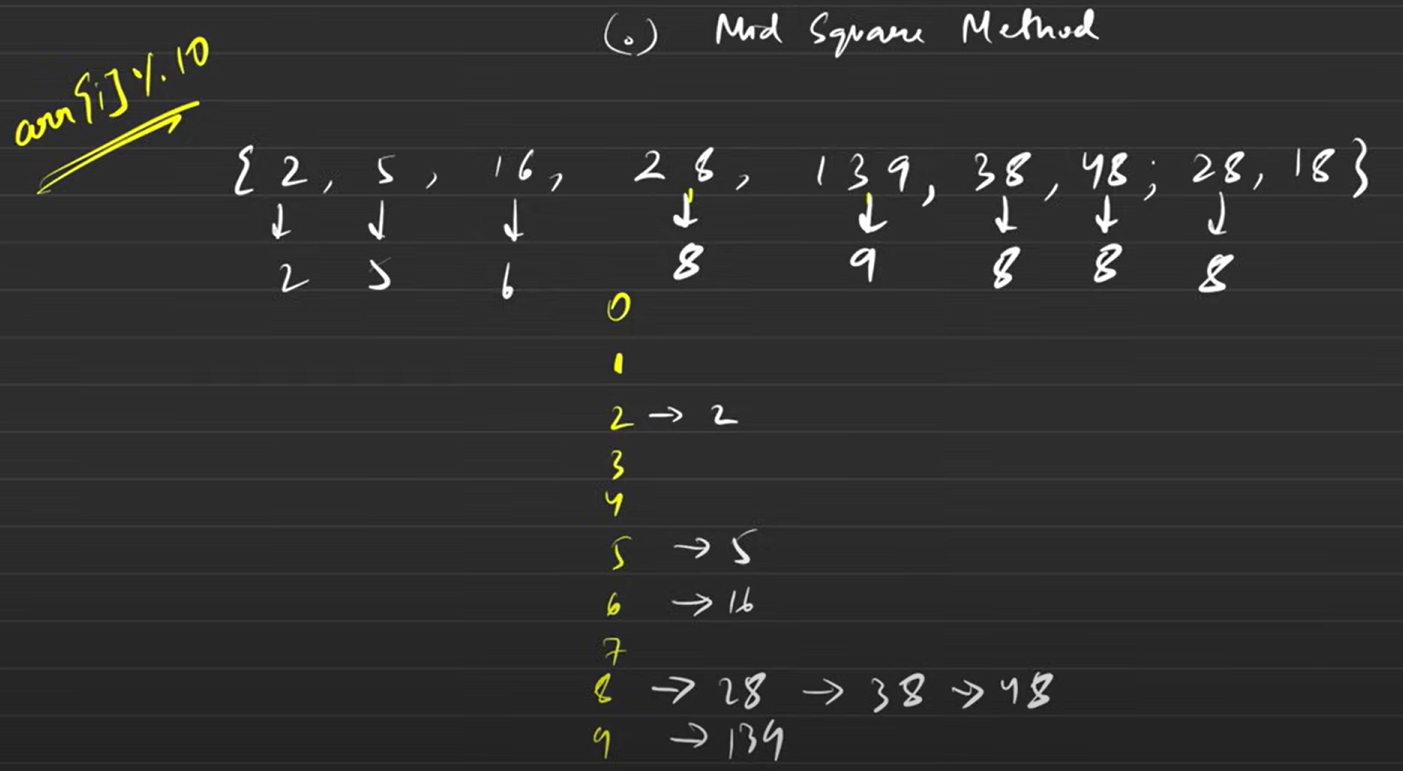 (.) Mid Square Method
arr[i] % 10
{ 2, 5, 16, 28, 139, 38, 48; 28, 18 }
↓ ↓ ↓ ↓ ↓ ↓ ↓ ↓
2 5 6 8 9 8 8 8
0
1
2 → 2
3
4
5 → 5
6 → 16
7
8 → 28 → 38 → 48
9 → 139